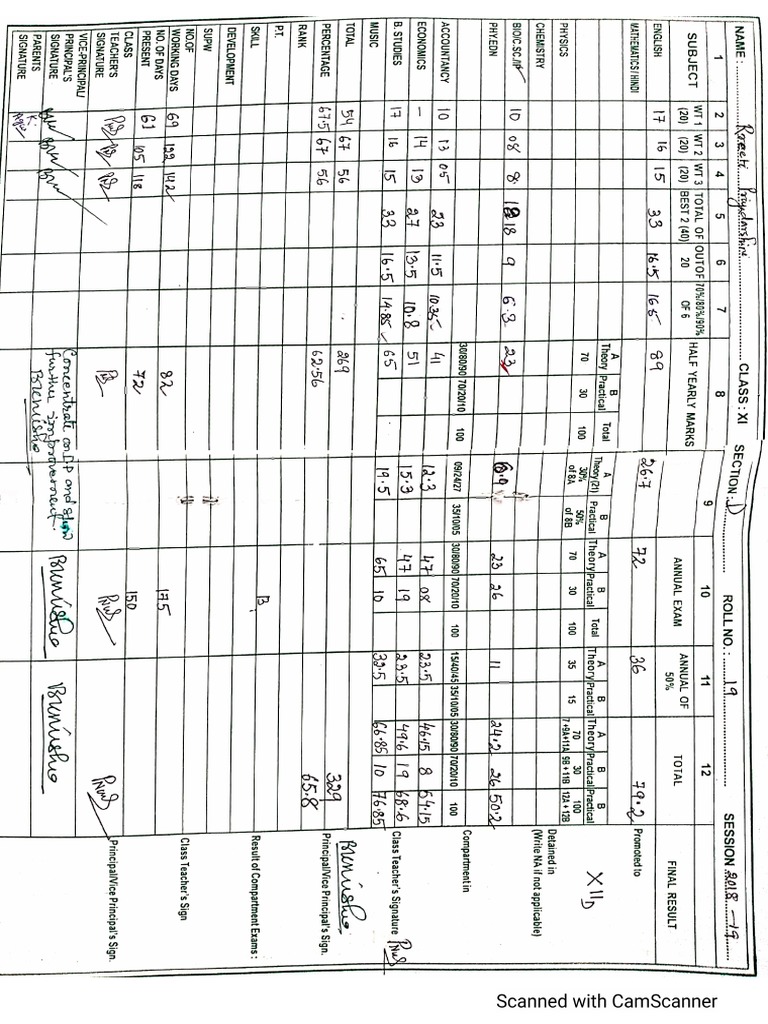 NAME : Preeti Priydarshini CLASS : XI SECTION : D ROLL NO. : 19 SESSION 2018-19
1 2 3 4 5 6 7 8 9 10 11 12 FINAL RESULT
SUBJECT WT 1 (20) WT 2 (20) WT 3 (20) TOTAL OF BEST 2 (40) OUT OF 20 70%/80%/90% OF 6 HALF YEARLY MARKS ANNUAL EXAM ANNUAL OF 50% TOTAL
ENGLISH 17 16 15 33 16.5 16.5 89 26.7 72 36 79.2
MATHEMATICS / HINDI Promoted to XII D
A Theory 70 B Practical 30 Total 100 A Theory (21) 30% of 8A B Practical 50% of 8B A Theory 70 B Practical 30 Total 100 A Theory 35 B Practical 15 A Theory 70 7+9A+11A B Practical 30 9B+11B Practical 100 12A+12B
PHYSICS
CHEMISTRY Detained in
(Write NA if not applicable)
BIO/C.SC./IP 10 08 8 18 9 6.3 23 6.9 23 26 11 24.2 26 50.2
PHY.EDN
30/80/90 70/20/10 100 09/24/27 35/10/05 30/80/90 70/20/10 100 15/40/45 35/10/05 30/80/90 70/20/10 100 Compartment in
ACCOUNTANCY 10 13 05 23 11.5 10.35 41 12.3 47 08 23.5 46.15 8 54.15
ECONOMICS - 14 13 27 13.5 10.8 51 15.3 47 19 23.5 49.6 19 68.6
B. STUDIES 17 16 15 33 16.5 14.85 65 19.5 65 10 32.5 66.85 10 76.85 Class Teacher's Signature
MUSIC
TOTAL 54 67 56 269 329
PERCENTAGE 67.5 67 56 62.56 65.8 Principal/Vice Principal's Sign.
RANK
P.T.
SKILL B Result of Compartment Exams :
DEVELOPMENT
SUPW
NO.OF WORKING DAYS 69 122 142 82 175 Class Teacher's Sign
NO. OF DAYS PRESENT 61 105 118 72 150
CLASS TEACHER'S SIGNATURE Principal/Vice Principal's Sign.
VICE-PRINCIPAL/ PRINCIPAL'S SIGNATURE Concentrate on IP and show further improvement.
PARENTS SIGNATURE
Scanned with CamScanner